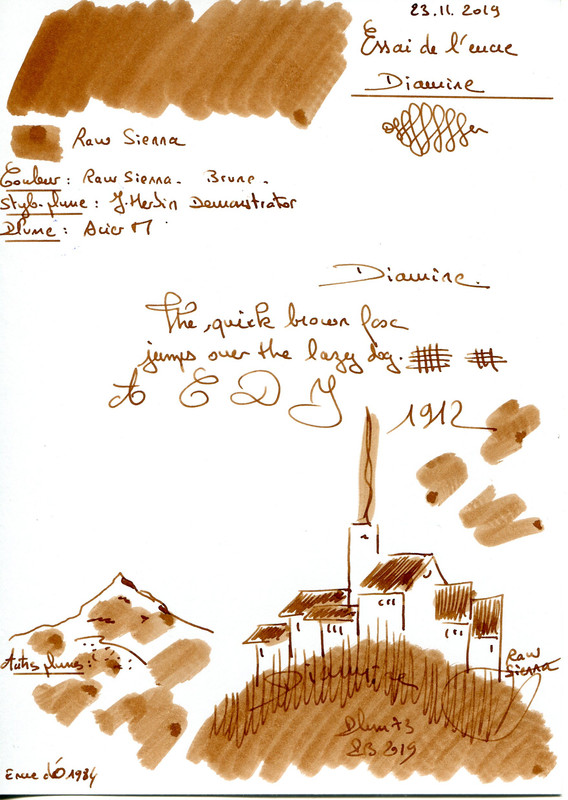 23.11.2019
Essai de l'encre
Diamine
Raw Sienna
Couleur : Raw Sienna. Brune.
Stylo-plume : J. Herbin Demonstrator
Plume : Acier M
Diamine.
The quick brown fox
jumps over the lazy dog.
A E D J
1912
Autres plumes :
Raw
Sienna
Diamine
Plum 73
23 2019
1984